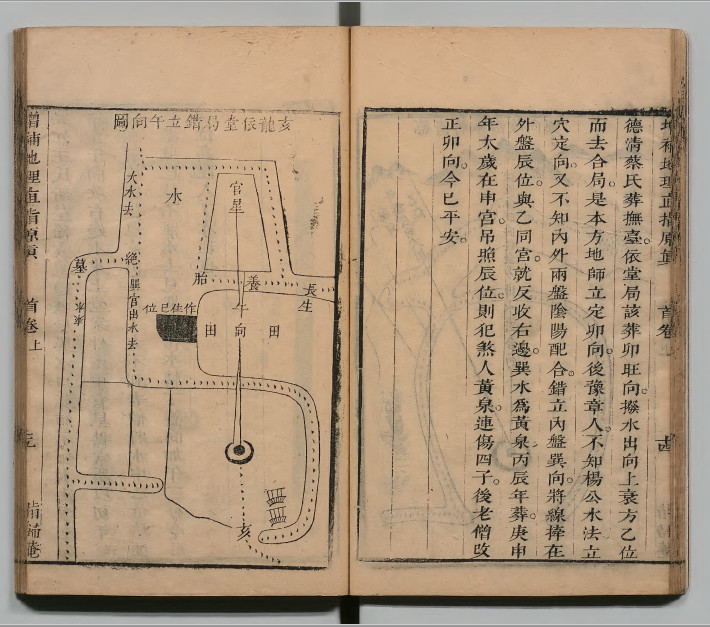 德清蔡氏葬撫臺。依堂局該葬卯旺向。撥水出向上衰方乙位
而去合局。是本方地師立定卯向。後豫章人。不知楊公水法立
穴定向。又不知內外兩盤陰陽配合。錯立內盤巽向。將線捧在
外盤辰位。與乙同宮。就反收右邊。巽水爲黃泉。丙辰年葬。庚申
年太歲在申宮。吊照辰位。則犯煞人黃泉。連傷四子。後老僧改
正卯向。今已平安。
首卷上
亥龍依堂局錯立午向圖
官星
水
大水去
長生
養
胎
絕
墓
巽官出水去
作佳巳位
午向
田
田
亥
增補地理直指原真
首卷上